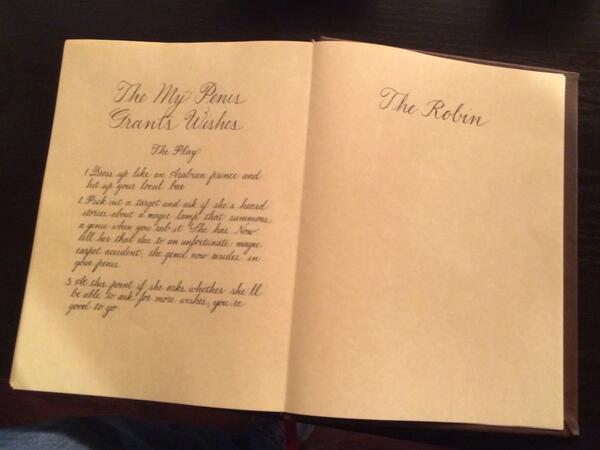 The My Penis
Grants Wishes
The Play
1. Dress up like an Arabian prince and
hit up your local bar
2. Pick out a target and ask if she's heard
stories about a magic lamp that summons
a genie when you rub it She has Now
tell her that due to an unfortunate magic
carpet accident, the genie now resides in
your penis
3. At this point if she asks whether she'll
be able to ask for more wishes, you're
good to go
The Robin